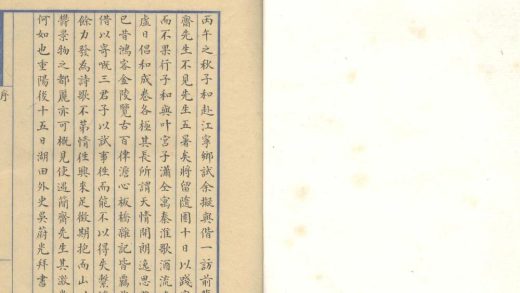 丙午之秋子和赴江寧鄉試余擬與偕一訪前
齋先生不見先生五暑矣將留隨園十日以踐
而不果行子和與叶宮子瀟仝寓秦淮歌酒流
虛日倡和成卷各極其長所謂天情開朗逸思
已昔鴻客金陵覽古百律澹心板橋雜記皆羈
借以寄嘅三君子以試事徃而能不以得失縈
餘力發為詩歌不第情徃興来足徵期抱而山
欝景物之都麗亦可概見使遇簡齋先生其激
何如也重陽後十五日湖田外史吳蔚光拜書
序